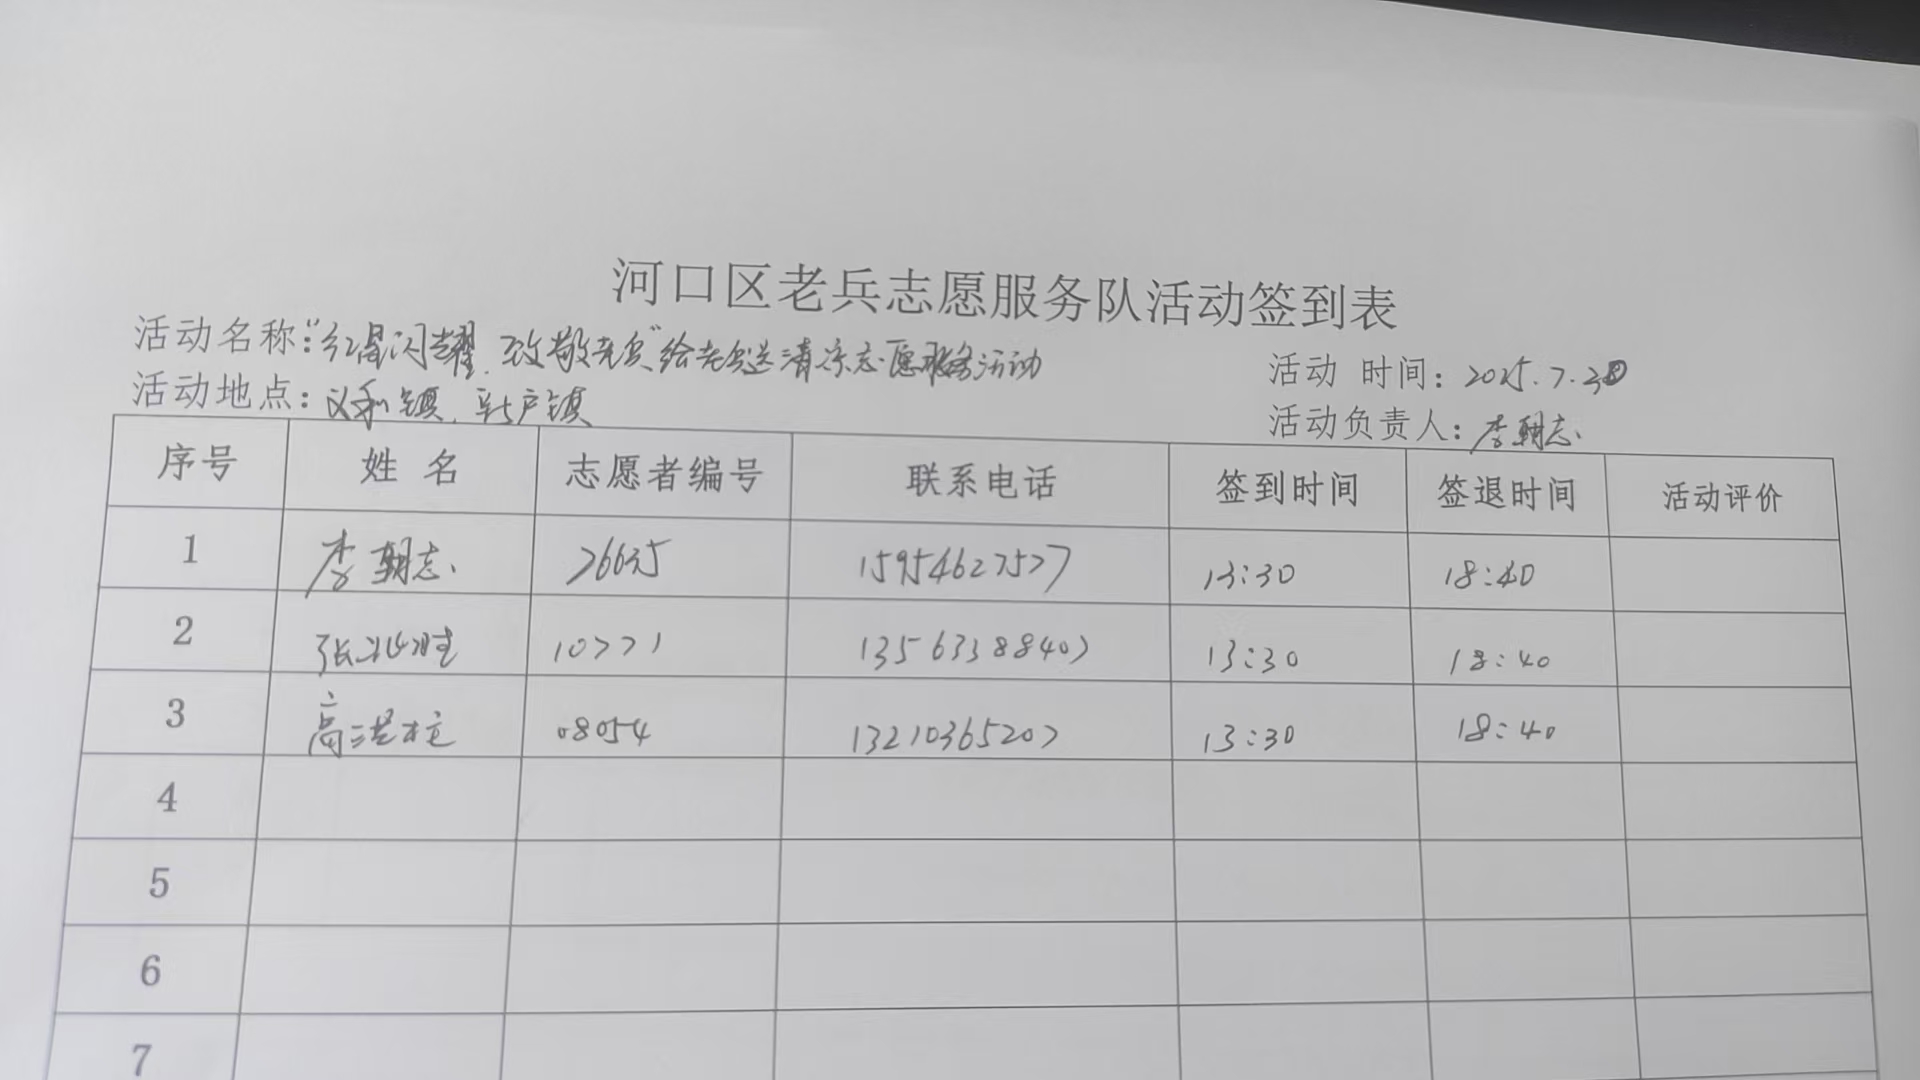 河口区老兵志愿服务队活动签到表
活动名称："红星闪耀，致敬老兵"给老兵送清凉志愿服务活动
活动时间：2025.7.30
活动地点：义和镇、新户镇
活动负责人：李朝志
序号 姓名 志愿者编号 联系电话 签到时间 签退时间 活动评价
1 李朝志 76635 15954627577 13:30 18:40
2 张兆胜 10771 13563388407 13:30 18:40
3 高洪柱 08054 13210365207 13:30 18:40
4
5
6
7